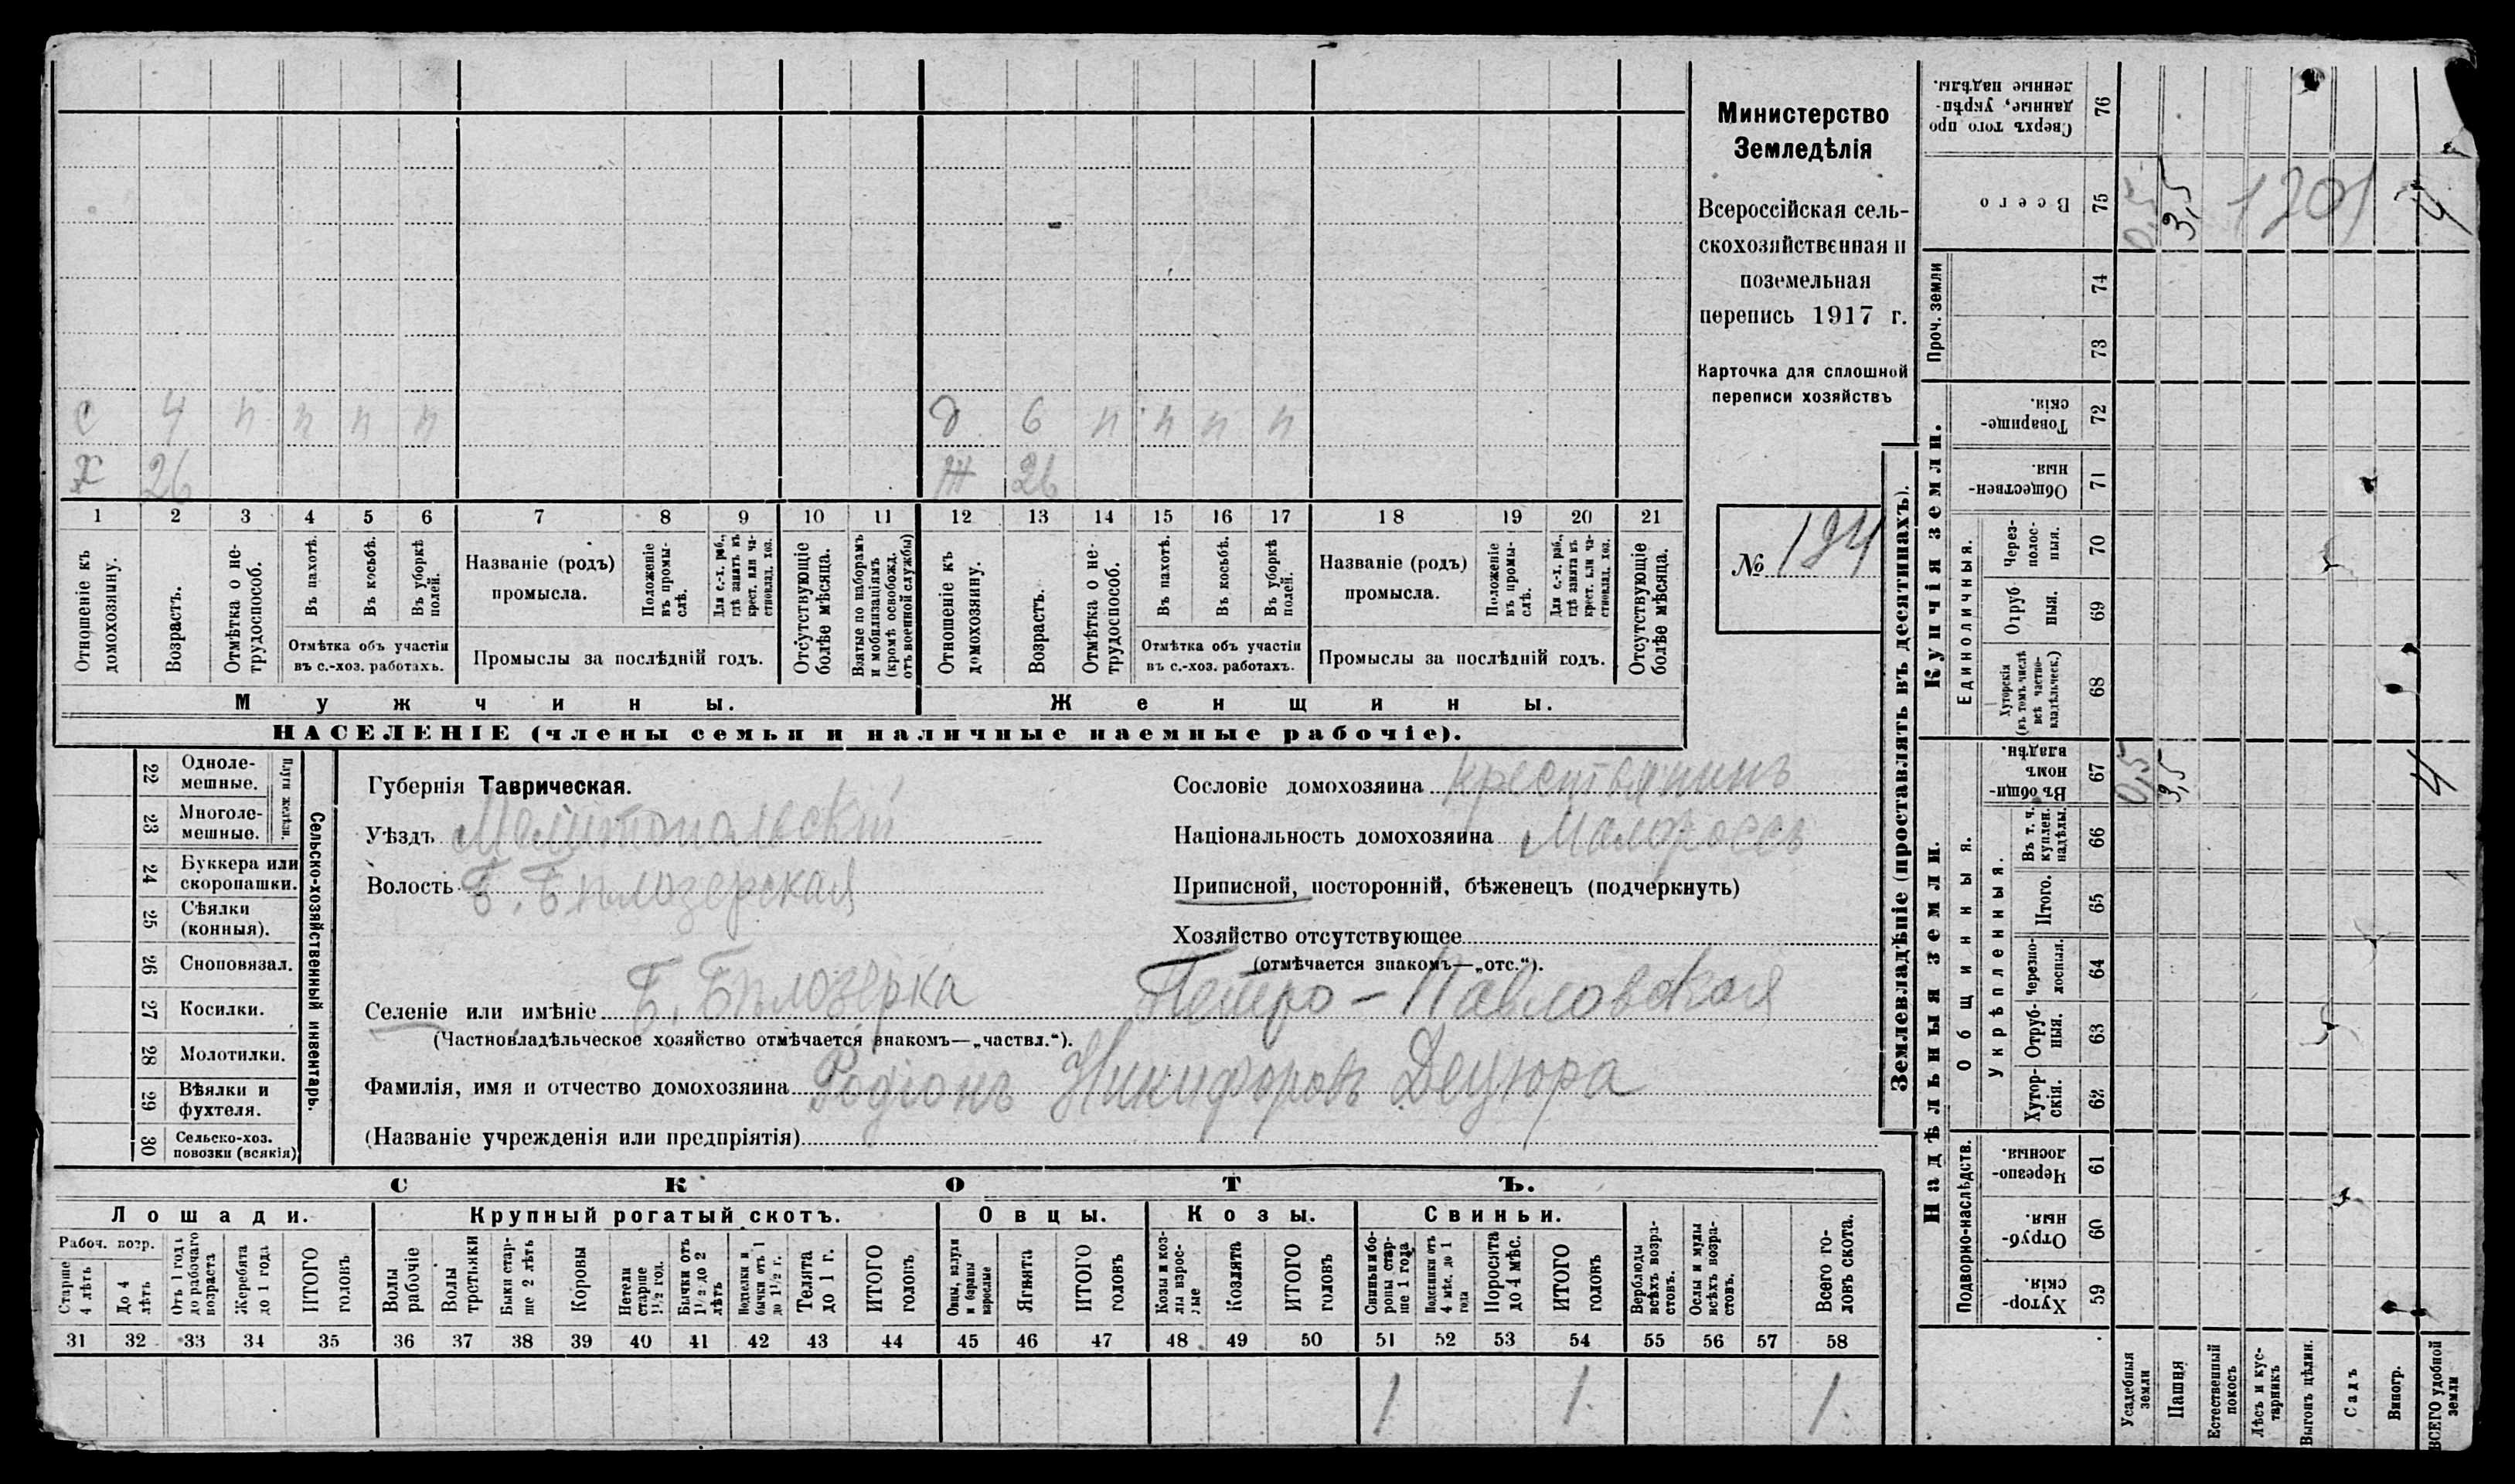 с 4 п п п п д 6 п п п п
х 26 ж 26
1 2 3 4 5 6 7 8 9 10 11 12 13 14 15 16 17 18 19 20 21
Отношеніе къ домохозяину.
Возрастъ.
Отмѣтка о не-трудоспособ.
Въ пахотѣ.
Въ косьбѣ.
Въ уборкѣ полей.
Отмѣтка объ участіи
въ с.-хоз. работахъ.
Названіе (родъ)
промысла.
Положеніе въ промы-слѣ.
Для с.-х. раб., гдѣ занятъ въ крест. или ча-стновлад. хоз.
Промыслы за послѣдній годъ.
Отсутствующіе болѣе мѣсяца.
Взятые по наборамъ и мобилизаціямъ (кромѣ освобожд. отъ военной службы)
Отношеніе къ домохозяину.
Возрастъ.
Отмѣтка о не-трудоспособ.
Въ пахотѣ.
Въ косьбѣ.
Въ уборкѣ полей.
Отмѣтка объ участіи
въ с.-хоз. работахъ.
Названіе (родъ)
промысла.
Положеніе въ промы-слѣ.
Для с.-х. раб., гдѣ занята въ крест. или ча-стновлад. хоз.
Промыслы за послѣдній годъ.
Отсутствующіе болѣе мѣсяца.
Мужчины. Женщины.
НАСЕЛЕНІЕ (члены семьи и наличные наемные рабочіе).
Министерство
Земледѣлія
Всероссійская сель-
скохозяйственная и
поземельная
перепись 1917 г.
Карточка для сплошной
переписи хозяйствъ
№ 124
22 Одноле-мешные.
23 Многоле-мешные.
Плуги желѣзн.
24 Буккера или скоропашки.
25 Сѣялки (конныя).
26 Сноповязал.
27 Косилки.
28 Молотилки.
29 Вѣялки и фухтеля.
30 Сельско-хоз. повозки (всякія)
Сельско-хозяйственный инвентарь.
Губернія Таврическая.
Уѣздъ Мелитопольскій
Волость Б. Бѣлозерская
Сословіе домохозяина крестьянинъ
Національность домохозяина Малороссъ
Приписной, посторонній, бѣженецъ (подчеркнуть)
Хозяйство отсутствующее
(отмѣчается знакомъ—„отс.“).
Селеніе или имѣніе Б. Бѣлозерка Петро-Павловская
(Частновладѣльческое хозяйство отмѣчается знакомъ—„частвл.“).
Фамилія, имя и отчество домохозяина Родіонъ Никифоровъ Децюра
(Названіе учрежденія или предпріятія)
СКОТЪ.
Лошади. Крупный рогатый скотъ. Овцы. Козы. Свиньи.
Рабоч. возр.
Старше 4 лѣтъ
До 4 лѣтъ
Отъ 1 года до рабочаго возраста
Жеребята до 1 года
ИТОГО головъ
Волы рабочіе
Волы третьяки
Быки стар-ше 2 лѣтъ
Коровы
Нетели старше 1½ год.
Бычки отъ 1½ до 2 лѣтъ
Подтелки и бычки отъ 1 до 1½ г.
Телята до 1 г.
ИТОГО головъ
Овцы, валухи и бараны взрослые
Ягнята
ИТОГО головъ
Козы и коз-лы взрос-лые
Козлята
ИТОГО головъ
Свиньи и бо-ровы стар-ше 1 года
Подсвинки отъ 4 мѣс. до 1 года
Поросята до 4 мѣс.
ИТОГО головъ
Верблюды всѣхъ возра-стовъ.
Ослы и мулы всѣхъ возра-стовъ.
Всего го-ловъ скота.
31 32 33 34 35 36 37 38 39 40 41 42 43 44 45 46 47 48 49 50 51 52 53 54 55 56 57 58
1 1 1
Землевладѣніе (проставлять въ десятинахъ).
Сверхъ того про данные, укрѣп-ленные надѣлы. 76
Всего 75 0,5 3,5 1201 4
Проч. земли 74
73
Купчія земли.
Товарище-скія. 72
Обществен-ныя. 71
Единоличныя.
Через-полос-ныя. 70
Отруб ныя. 69
Хуторскія (въ томъ числѣ всѣ частно-владѣльческ.) 68
Надѣльныя земли.
Общинныя.
Въ общи-номъ владѣн. 67 0,5 3,5 4
Укрѣпленныя.
Въ т. ч. куплен. надѣлы. 66
Итого. 65
Черезпо-лосныя. 64
Отруб-ныя. 63
Хутор-скія. 62
Подворно-наслѣдств.
Черезпо-лосныя. 61
Отруб-ныя. 60
Хутор-скія. 59
Усадебныя земли
Пашня
Естественный покосъ
Лѣсъ и кус-тарникъ
Выгонъ цѣлин.
Садъ
Виногр.
ВСЕГО удобной земли